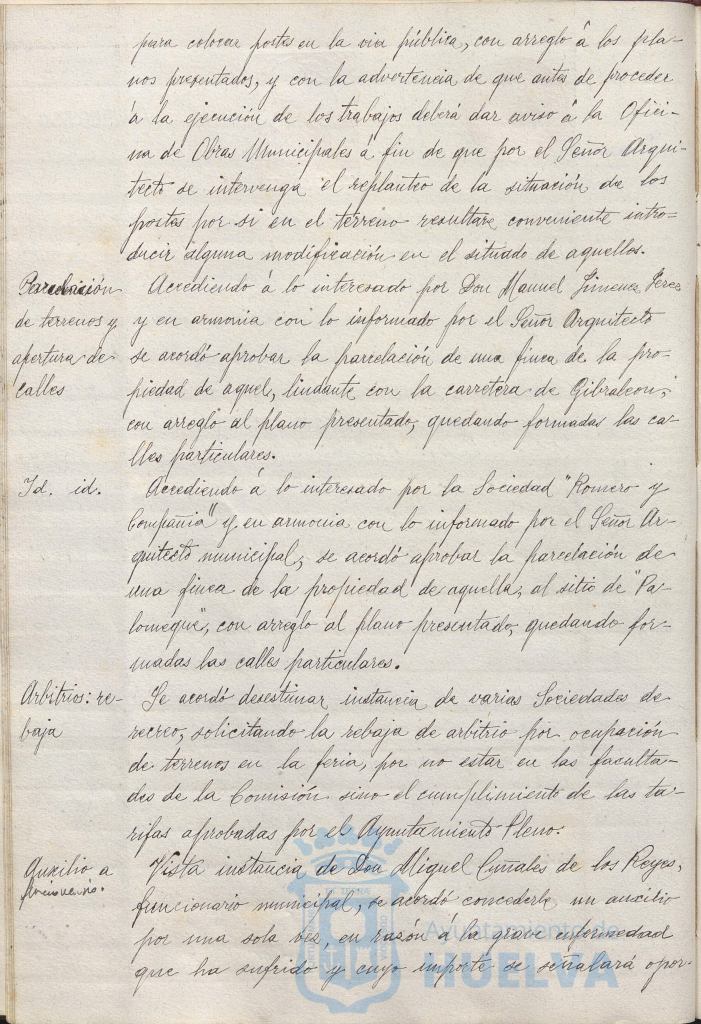 para colocar postes en la via pública, con arreglo á los pla-
nos presentados, y con la advertencia de que antes de proceder
á la ejecución de los trabajos deberá dar aviso á la Ofici-
na de Obras Municipales á fin de que por el Señor Arqui-
tecto se intervenga el replanteo de la situación de los
postes por si en el terreno resultare conveniente intro-
ducir alguna modificación en el situado de aquellos.
Parcelación
de terrenos y
apertura de
calles
Accediendo á lo interesado por Don Manuel Jimenez Perez
y en armonia con lo informado por el Señor Arquitecto
se acordó aprobar la parcelación de una finca de la pro-
piedad de aquel, lindante con la carretera de Gibraleon,
con arreglo al plano presentado, quedando formadas las ca-
lles particulares.
Id. id.
Accediendo á lo interesado por la Sociedad "Romero y
Compañia" y en armonia con lo informado por el Señor Ar-
quitecto municipal, se acordó aprobar la parcelación de
una finca de la propiedad de aquella, al sitio de "Pa-
lomeque", con arreglo al plano presentado, quedando for-
madas las calles particulares.
Arbitrios: re-
baja
Se acordó desestimar instancia de varias Sociedades de
recreo, solicitando la rebaja de arbitrio por ocupación
de terrenos en la feria, por no estar en las faculta-
des de la Comisión sino el cumplimiento de las ta-
rifas aprobadas por el Ayuntamiento Pleno.
Auxilio a
Vista instancia de Don Miguel Cuñales de los Reyes,
funcionario municipal, se acordó concederle un auxilio
por una sola vez, en razón á la grave enfermedad
que ha sufrido y cuyo importe se señalará opor-
Ayuntamiento de
HUELVA